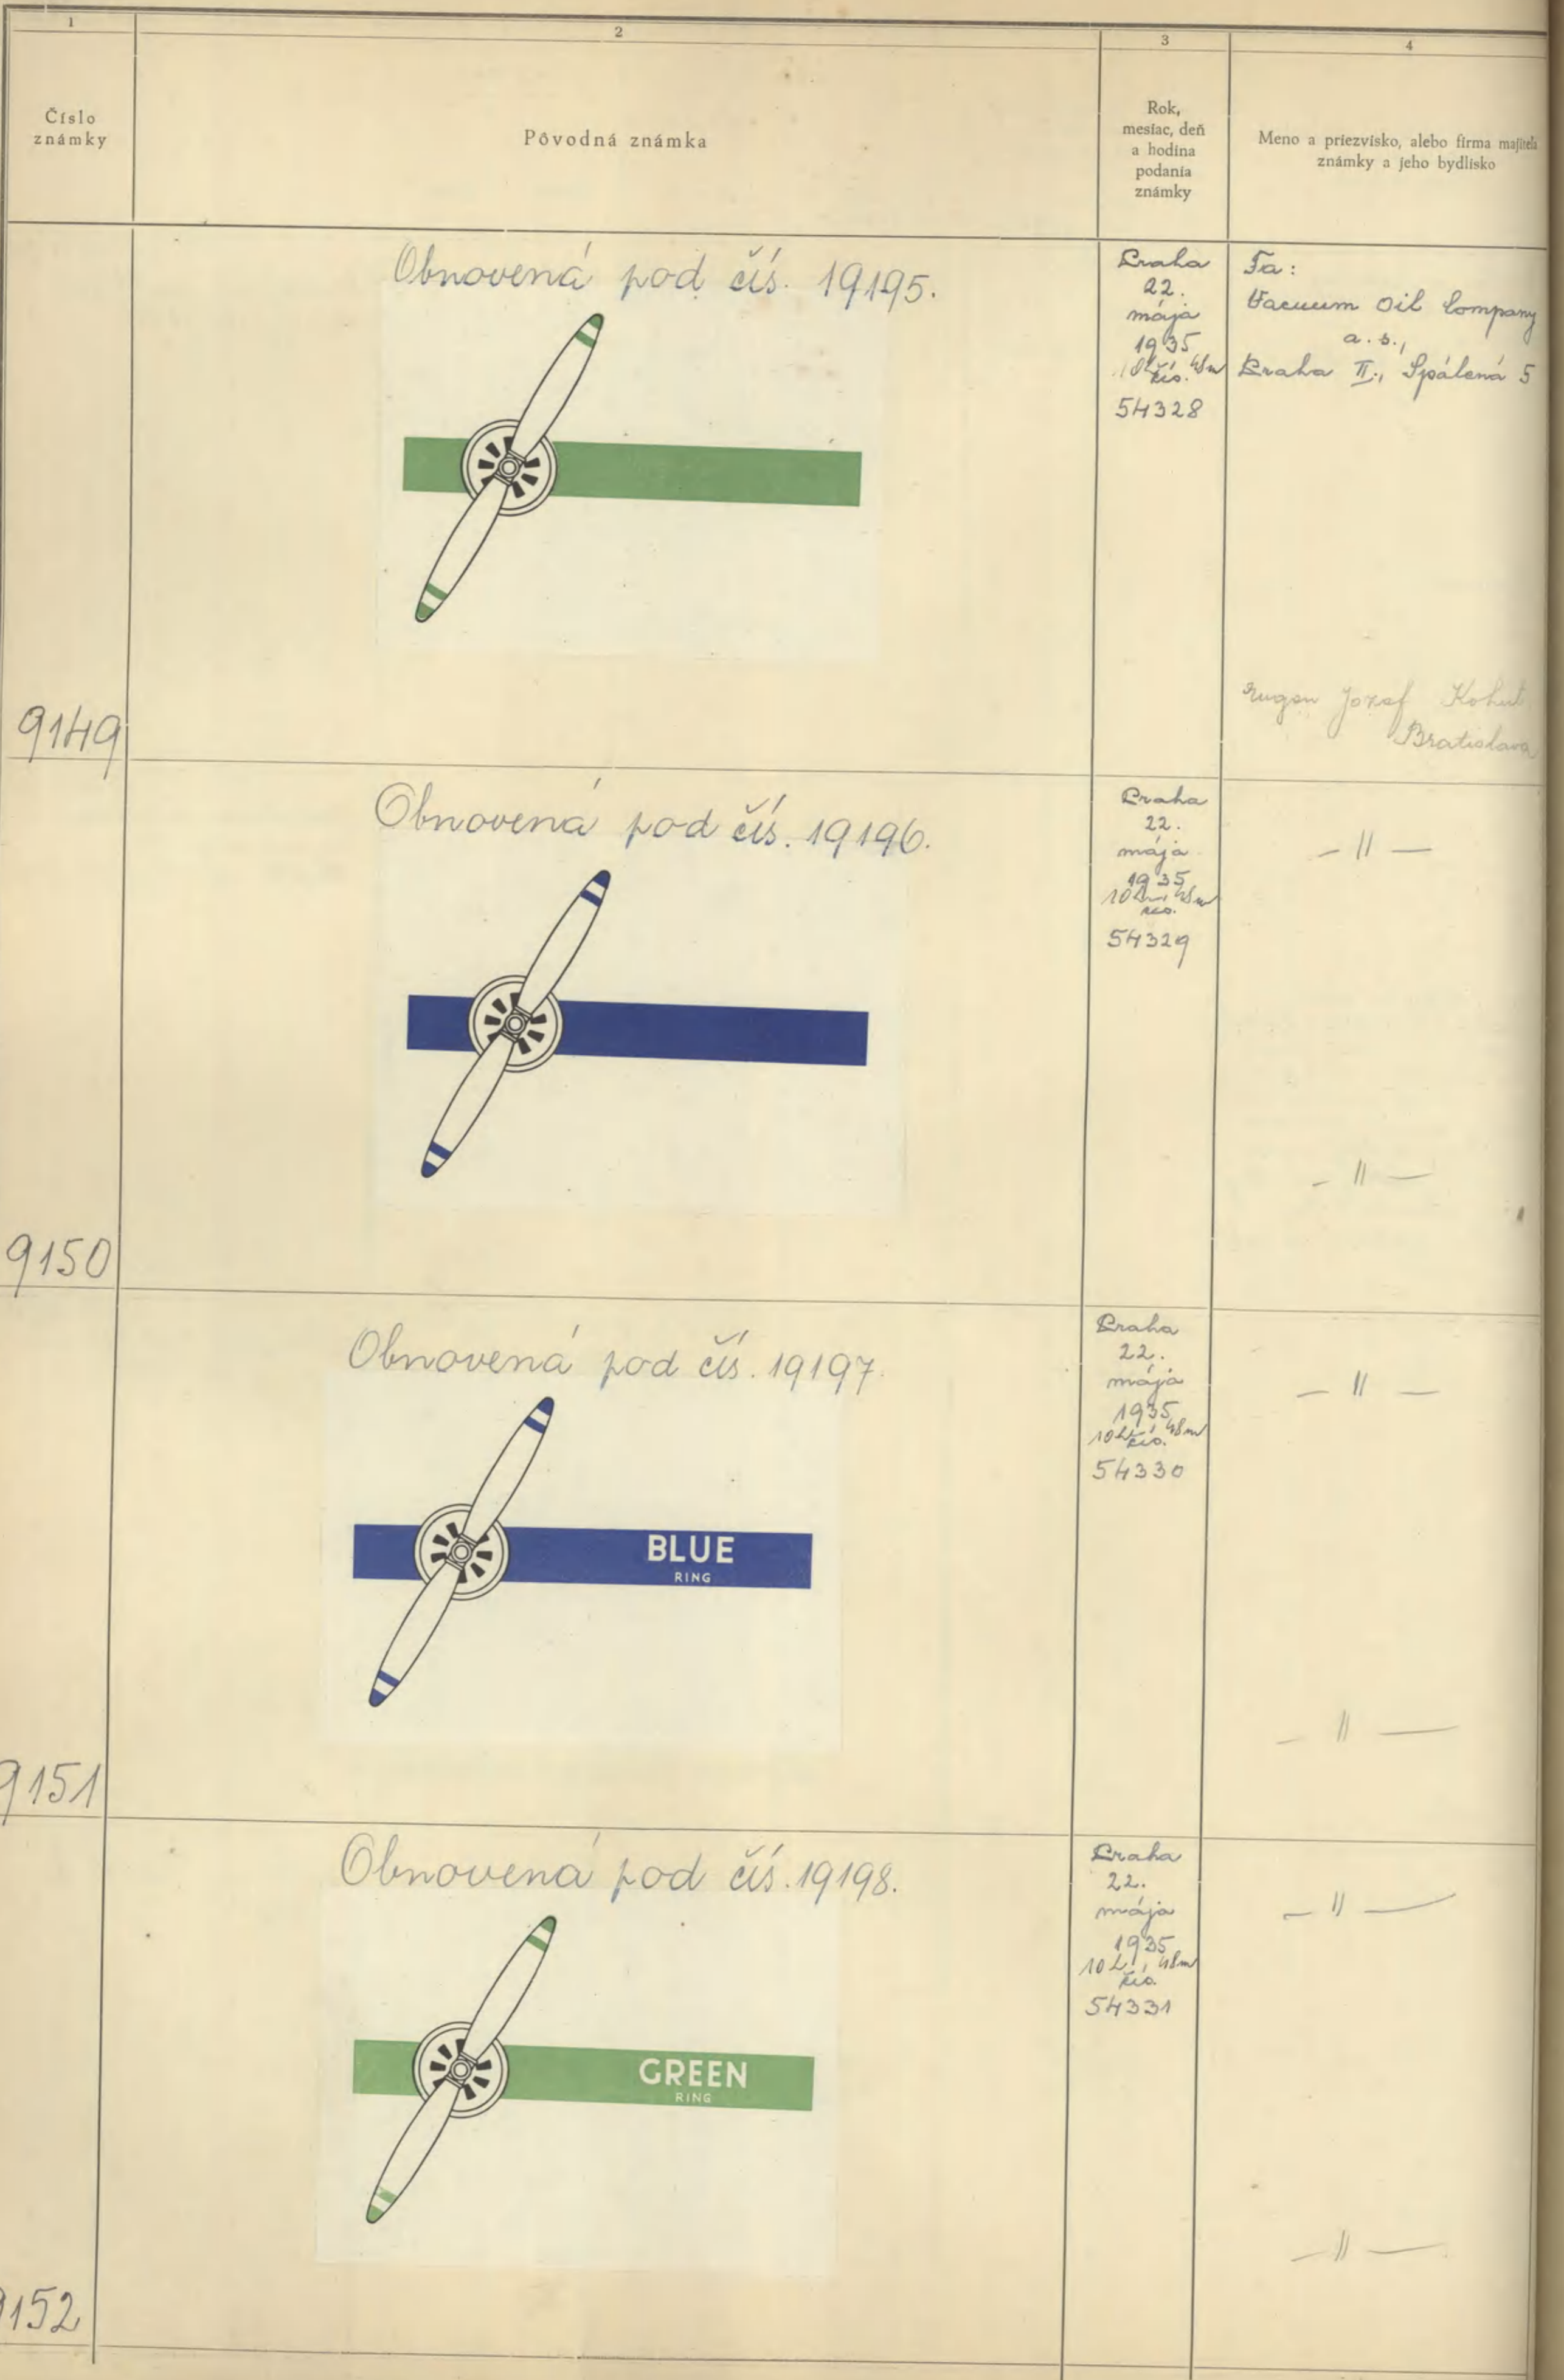 1
2
3
4
Číslo
známky
Pôvodná známka
Rok,
mesiac, deň
a hodina
podania
známky
Meno a priezvisko, alebo firma majiteľa
známky a jeho bydlisko
9149
Obnovená pod čís. 19195.
Praha
22.
mája
1935
10h, 48m
čís.
54328
Fa:
Vacuum Oil Company
a. s.,
Praha II., Spálená 5
Eugen Jozef Kohut
Bratislava
9150
Obnovená pod čís. 19196.
Praha
22.
mája
1935
10h, 48m
čís.
54329
— 〃 —
— 〃 —
9151
Obnovená pod čís. 19197.
BLUE
RING
Praha
22.
mája
1935
10h, 48m
čís.
54330
— 〃 —
— 〃 —
9152
Obnovená pod čís. 19198.
GREEN
RING
Praha
22.
mája
1935
10h, 48m
čís.
54331
— 〃 —
— 〃 —